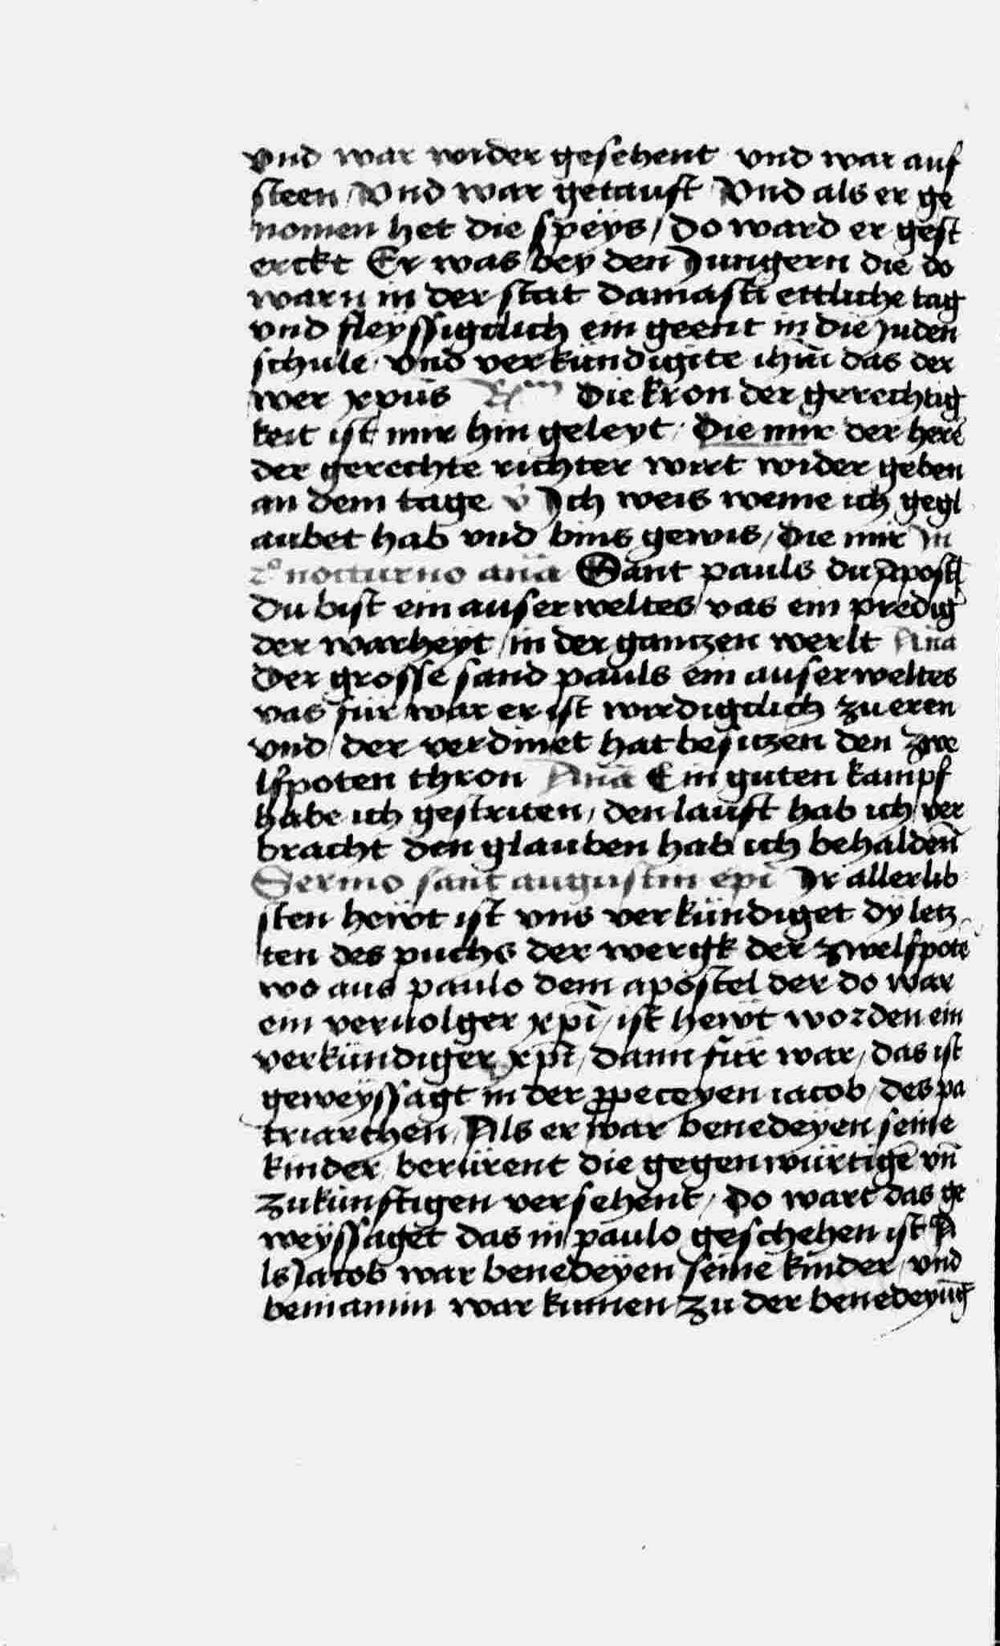 vnd war wider gesehent vnd war auf
steen / Vnd war getauft / Vnd als er ge
nomen het die speÿs / do ward er gest
erckt Er was bey den Jungern die do
warn in der stat damasti ettliche tag
vnd fleÿssigclich ein geent in die juden
schule / vnd verkundigite ihm̄ das der
wer xp̄us Die kron der gerechtig
keit ist mir hin geleyt / Die mir der here
der gerechte richter wirt wider geben
an dem tage v̊ Ich weis weme ich gegl
aubet hab vnd bins gewis / Die mir In
2º nocturno an̄a Sant pauls du apostl
du bist ein auserweltes vas ein predig
der warheÿt / in der gantzen werlt An̄a
Der grosse sand pauls ein auserweltes
vas fur war er ist wirdigclich zu eren
vnd der verdinet hat besitzen den zwe
lfpoten thron An̄a Ein guten kampf
habe ich gestriten / den lauft hab ich ver
bracht den glauben hab ich behalden̄
Sermo sant augustin ep̄i Ir aller lib
sten hewt ist vns verkündiget dy letz
ten des puchs der wergk der zwelfpotē
wo aus paulo dem apostel der do war
ein veruolger xp̄i / ist hewt worden ein
verkündiger xp̄i / dann für war / das ist
geweyssagt in der p̱peceyen iacob / des pa
triarchen / Als er war benedeÿen seine
kinder / berürent die gegenwürtigē vn̄
zukünftigen versehent / Do wart das ge
weyssaget das in paulo geschehen ist A
ls Jacob war benedeÿen seine kinder / vnd
beniamin war kumen zu der benedeyūg